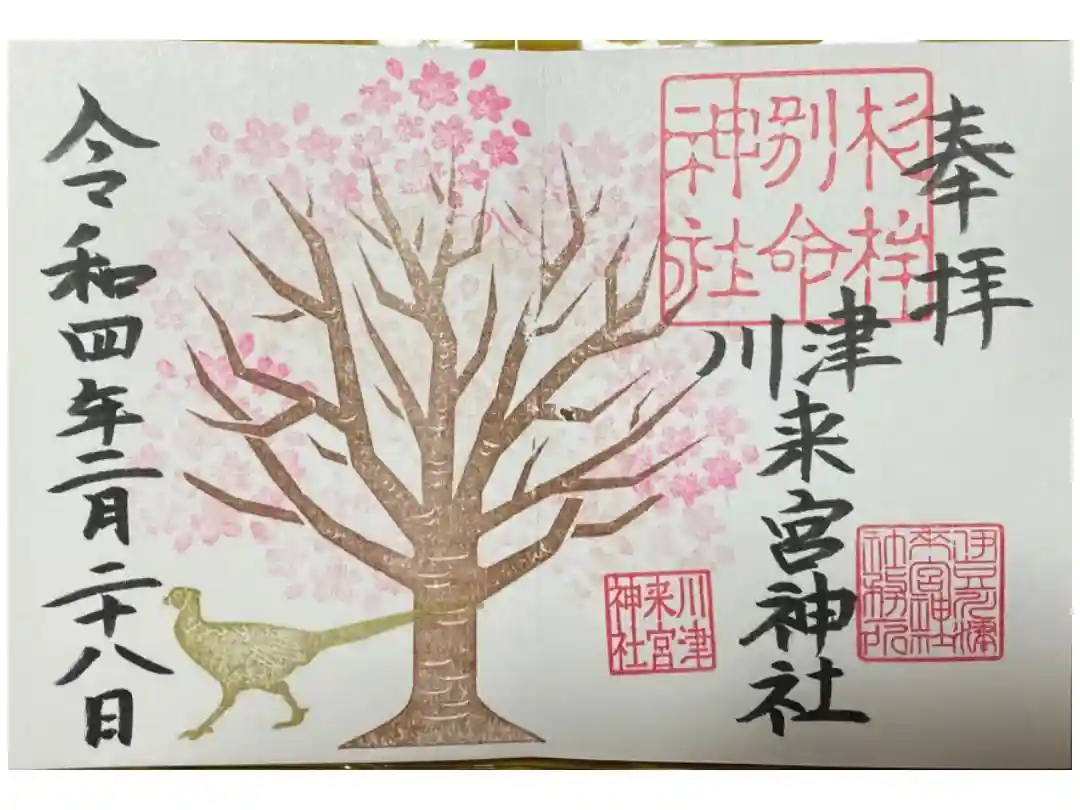 奉拝
杉桙
別命
神社
川津
来宮神社
来宮神社
社務所
川津
来宮
神社
令和四年二月二十八日